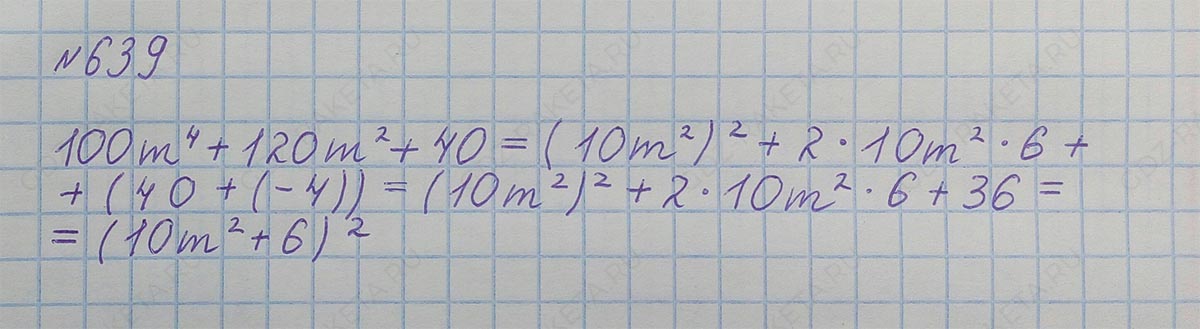 №639
100m⁴ + 120m² + 40 = (10m²)² + 2 · 10m² · 6 +
+ (40 + (-4)) = (10m²)² + 2 · 10m² · 6 + 36 =
= (10m² + 6)²